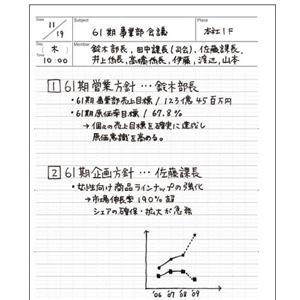 Date 11/19 Subject 61期 事業部会議 本社1F
Title (木) 10:00 Member 鈴木部長, 田中課長(司会), 佐藤課長,
井上係長, 高橋係長, 伊藤, 渡辺, 山本
1 61期 営業方針 … 鈴木部長
・61期 事業部売上目標 / 123億45百万円
・61期 原価率目標 / 67.8%
→ 個々の売上目標を確実に達成し
原価意識を高める。
2 61期 企画方針 … 佐藤課長
・女性向け商品ラインナップの強化
→ 市場伸長率190%超
シェアの確保・拡大が急務
'06 '07 '08 '09